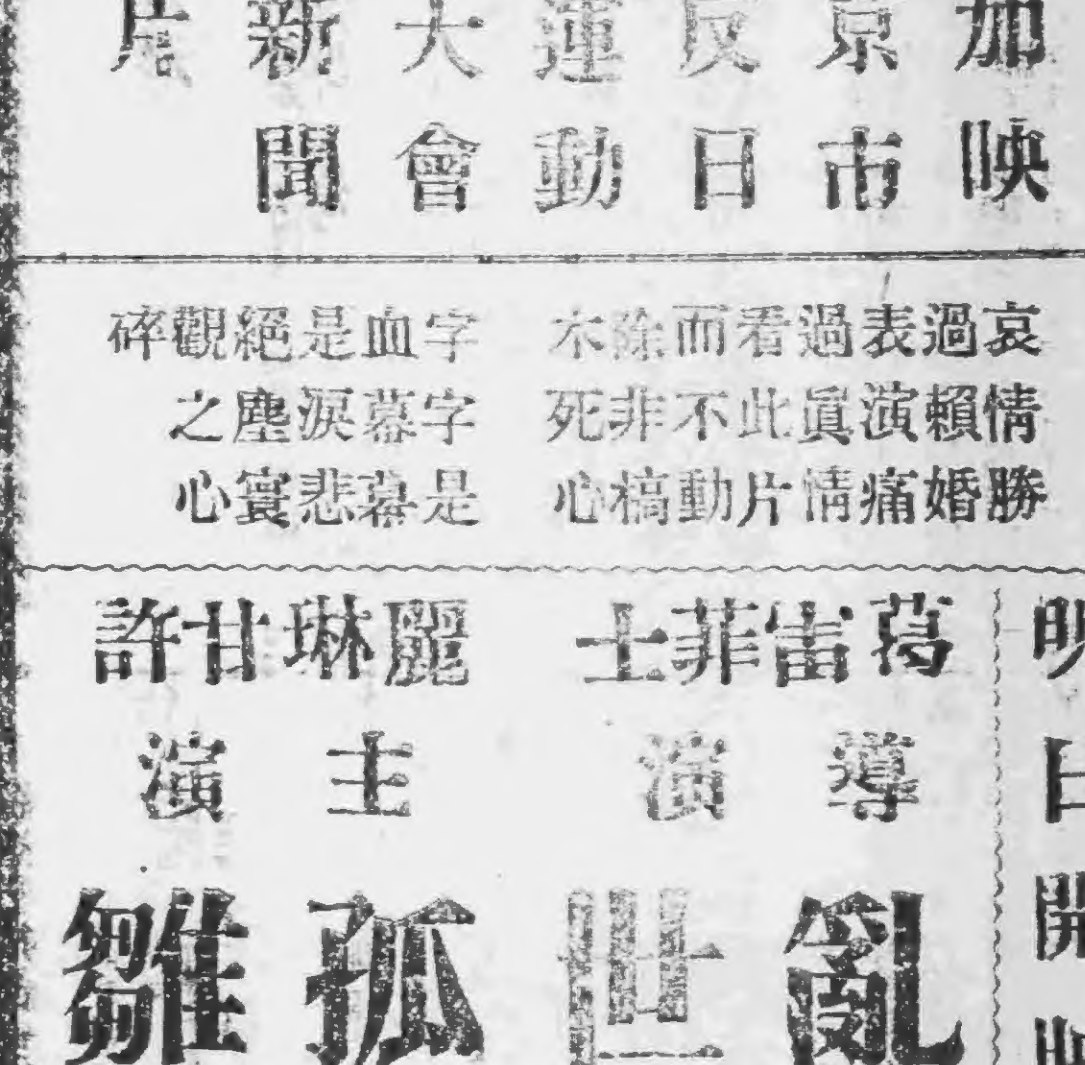 加映
京市
反日
運動
大會
新聞
片
哀情勝
過賴婚
表演痛
過眞情
看此片
而不動
除非槁
木死心
字字是
血幕幕
是淚悲
絕塵寰
觀之心
碎
明日開映
葛雷菲士
導演
麗琳甘許
主演
亂世孤雛